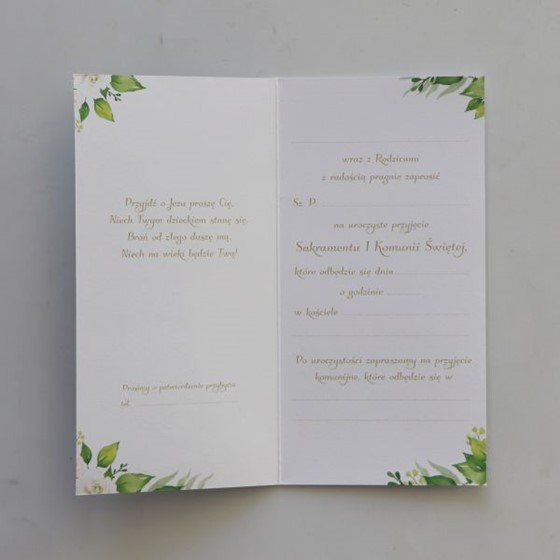 Przyjdź o Jezu proszę Cię,
Niech Twym dzieckiem stanę się.
Broń od złego duszę mą,
Niech na wieki będzie Twą!
Prosimy o potwierdzenie przybycia
tel.
wraz z Rodzicami
z radością pragnie zaprosić
Sz. P.
na uroczyste przyjęcie
Sakramentu I Komunii Świętej,
które odbędzie się dnia
o godzinie
w kościele
Po uroczystości zapraszamy na przyjęcie
komunijne, które odbędzie się w